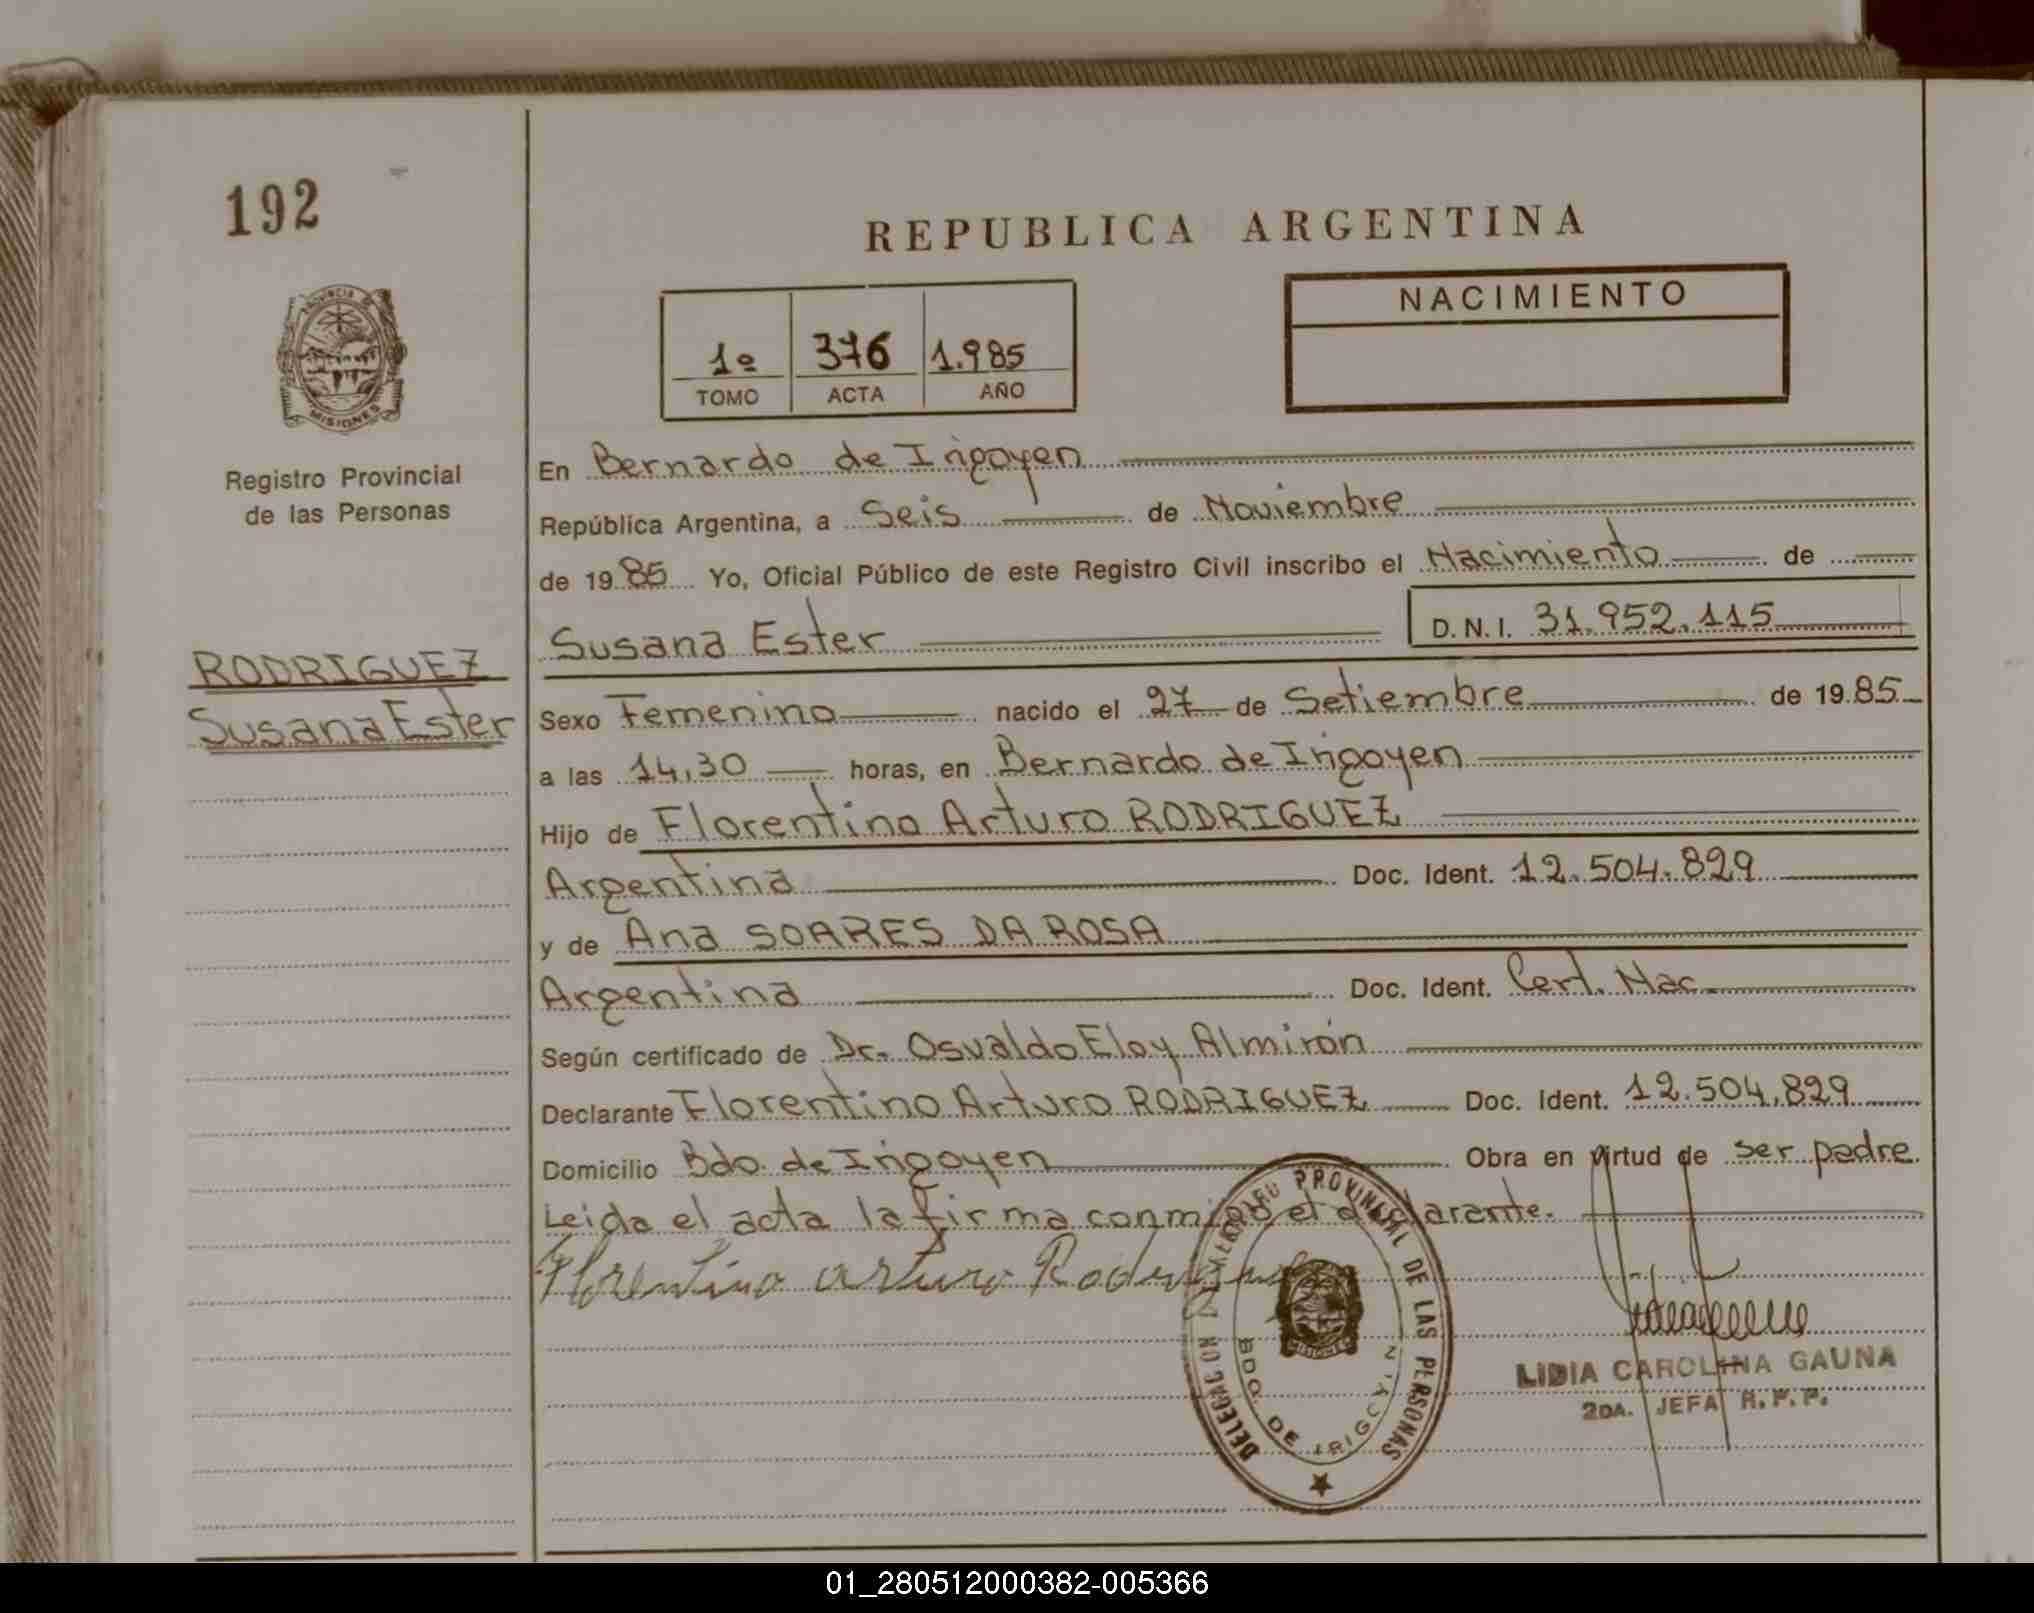 192
REPUBLICA ARGENTINA
NACIMIENTO
1º 376 1.985
TOMO ACTA AÑO
PROVINCIA DE
MISIONES
Registro Provincial
de las Personas
En Bernardo de Irigoyen
República Argentina, a Seis de Noviembre
de 19 85 Yo, Oficial Público de este Registro Civil inscribo el Nacimiento de
Susana Ester D.N.I. 31.952.115
RODRIGUEZ
Susana Ester
Sexo Femenino nacido el 27 de Setiembre de 19 85
a las 14,30 horas, en Bernardo de Irigoyen
Hijo de Florentino Arturo RODRIGUEZ
Argentina Doc. Ident. 12.504.829
y de Ana SOARES DA ROSA
Argentina Doc. Ident. Cert. Nac.
Según certificado de Dr. Osvaldo Eloy Almirón
Declarante Florentino Arturo RODRIGUEZ Doc. Ident. 12.504.829
Domicilio Bdo. de Irigoyen Obra en virtud de ser padre
Leida el acta la firma conmigo el declarante.
Florentino Arturo Rodriguez
DELEGACION PROVINCIAL DE LAS PERSONAS
BDO. DE IRIGOYEN
MISIONES
LIDIA CAROLINA GAUNA
2DA. JEFA R.P.P.
01_280512000382-005366